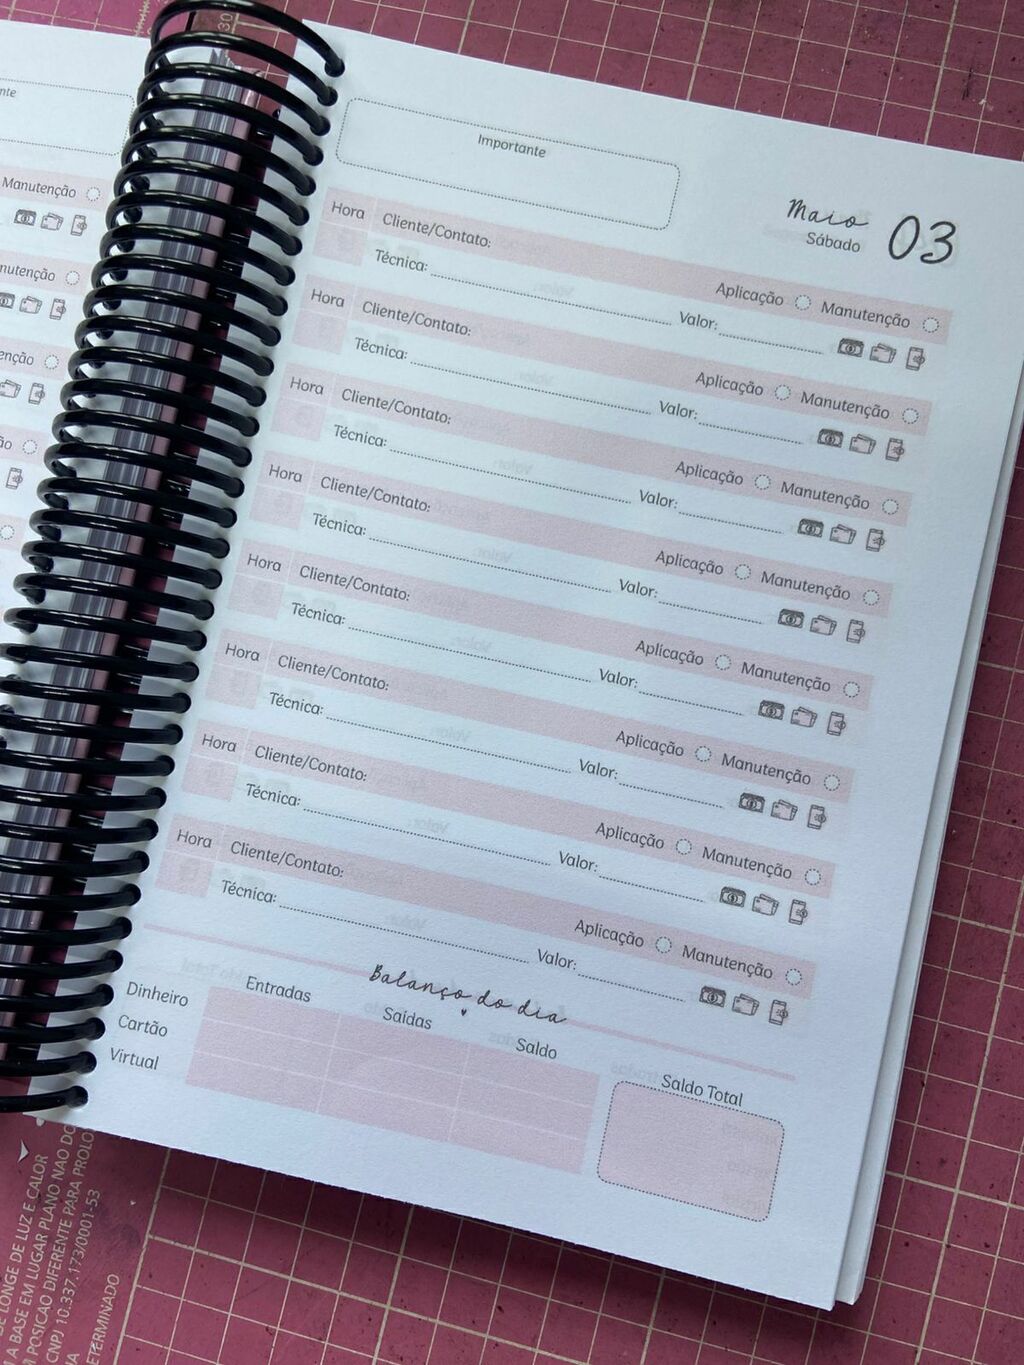 nte
Manutenção
nutenção
enção
ão
Importante
Maio 03
Sábado
Hora Cliente/Contato:
Aplicação Manutenção
Técnica: Valor:
Hora Cliente/Contato:
Aplicação Manutenção
Técnica: Valor:
Hora Cliente/Contato:
Aplicação Manutenção
Técnica: Valor:
Hora Cliente/Contato:
Aplicação Manutenção
Técnica: Valor:
Hora Cliente/Contato:
Aplicação Manutenção
Técnica: Valor:
Hora Cliente/Contato:
Aplicação Manutenção
Técnica: Valor:
Hora Cliente/Contato:
Aplicação Manutenção
Técnica: Valor:
Hora Cliente/Contato:
Aplicação Manutenção
Técnica: Valor:
Balanço do dia
Entradas Saídas Saldo
Dinheiro
Cartão
Virtual
Saldo Total
30
LONGE DE LUZ E CALOR
A BASE EM LUGAR PLANO NAO DO
POSICAO DIFERENTE PARA PROLO
CNPJ 10.337.173/0001-53
ETERMINADO